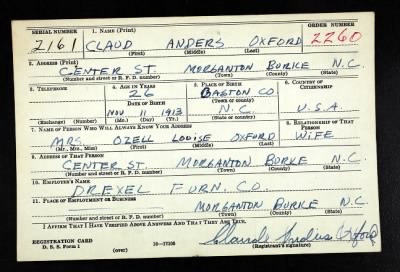 SERIAL NUMBER 1. NAME (Print) ORDER NUMBER
2161 CLAUD ANDERS OXFORD 2260
(First) (Middle) (Last)
2. ADDRESS (Print)
CENTER ST. MORGANTON BURKE N.C.
(Number and street or R. F. D. number) (Town) (County) (State)
3. TELEPHONE 4. AGE IN YEARS 5. PLACE OF BIRTH 6. COUNTRY OF CITIZENSHIP
26 GASTON CO.
DATE OF BIRTH (Town or county)
NOV 11 1913 N.C. U.S.A.
(Exchange) (Number) (Mo.) (Day) (Yr.) (State or country)
7. NAME OF PERSON WHO WILL ALWAYS KNOW YOUR ADDRESS 8. RELATIONSHIP OF THAT PERSON
MRS. OZELL LOUISE OXFORD WIFE
(Mr., Mrs., Miss) (First) (Middle) (Last)
9. ADDRESS OF THAT PERSON
CENTER ST. MORGANTON BURKE N.C.
(Number and street or R. F. D. number) (Town) (County) (State)
10. EMPLOYER'S NAME
DREXEL FURN. CO.
11. PLACE OF EMPLOYMENT OR BUSINESS
MORGANTON BURKE N.C.
(Number and street or R. F. D. number) (Town) (County) (State)
I AFFIRM THAT I HAVE VERIFIED ABOVE ANSWERS AND THAT THEY ARE TRUE.
REGISTRATION CARD
D. S. S. Form 1 (over) (Registrant's signature)